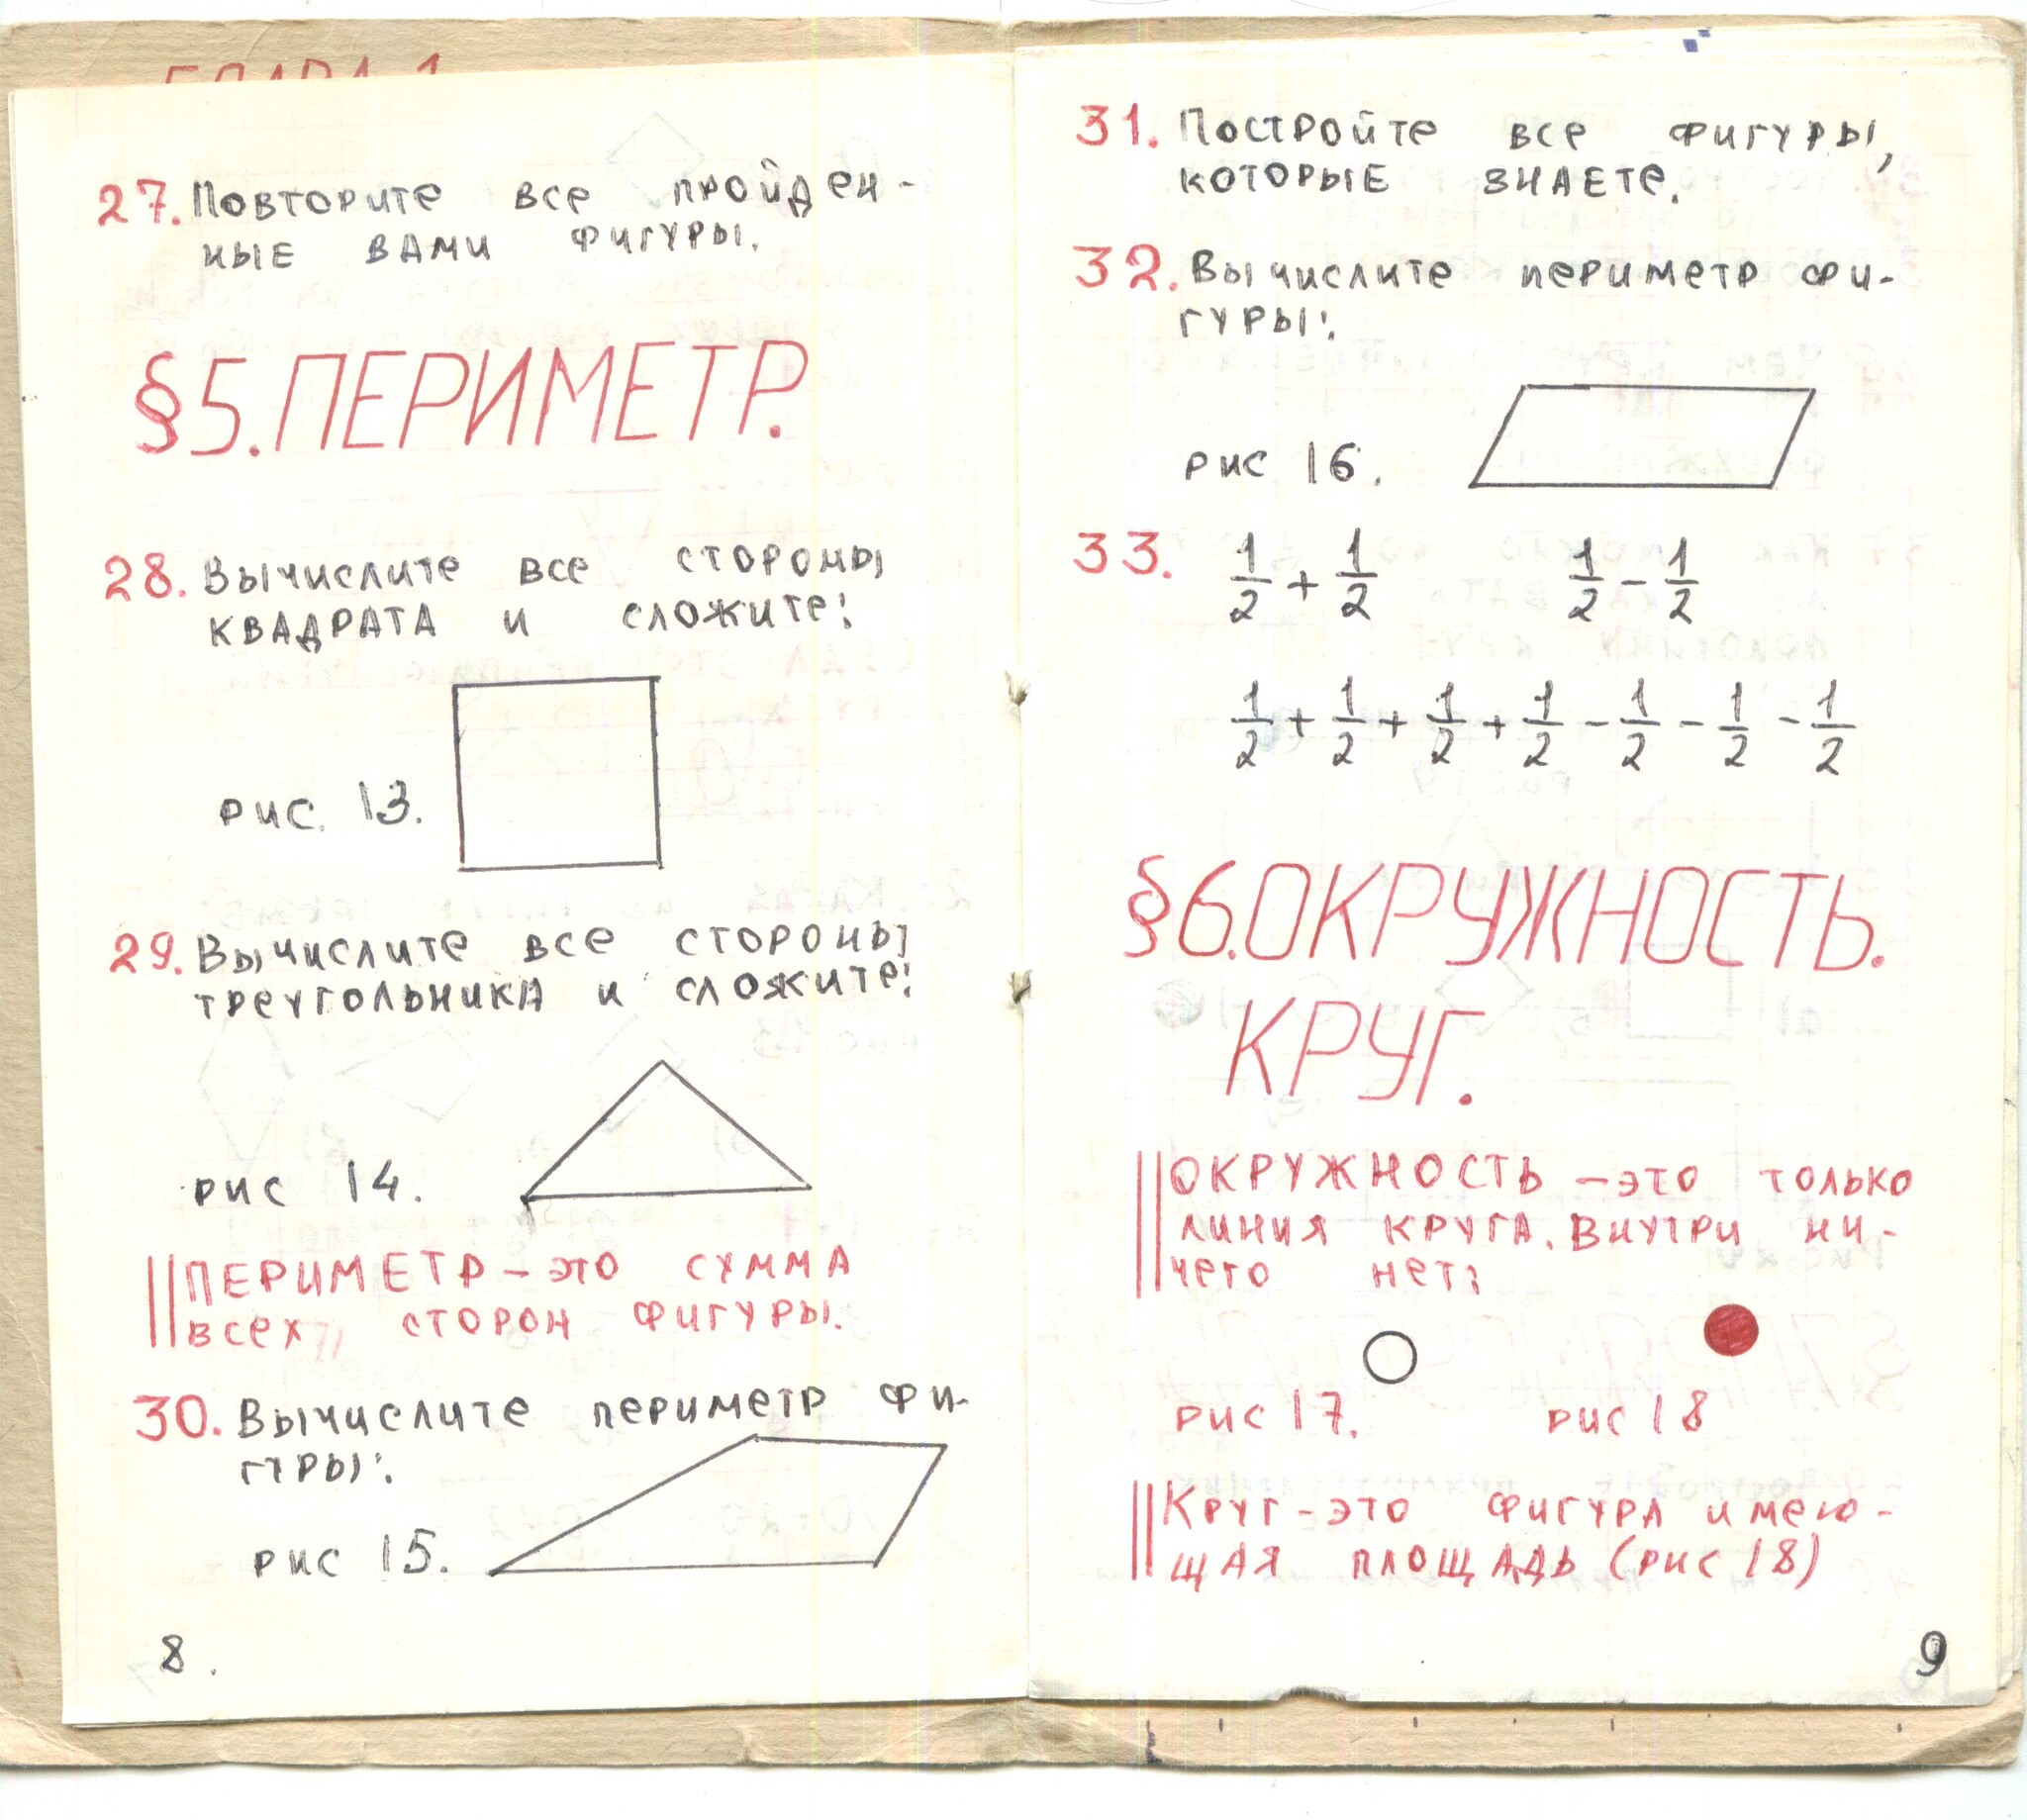 27. Повторите все пройден-
ные вами фигуры.
§5. ПЕРИМЕТР.
28. Вычислите все стороны
квадрата и сложите:
рис. 13.
29. Вычислите все стороны
треугольника и сложите:
рис 14.
ПЕРИМЕТР – это сумма
всех сторон фигуры.
30. Вычислите периметр фи-
гуры:
рис 15.
8.
31. Постройте все фигуры,
которые знаете.
32. Вычислите периметр фи-
гуры:
рис 16.
33. 1/2 + 1/2 1/2 – 1/2
1/2 + 1/2 + 1/2 + 1/2 – 1/2 – 1/2 – 1/2
§6. ОКРУЖНОСТЬ.
КРУГ.
ОКРУЖНОСТЬ – это только
линия круга. Внутри ни-
чего нет:
рис 17. рис 18
Круг – это фигура имею-
щая площадь (рис 18)
9